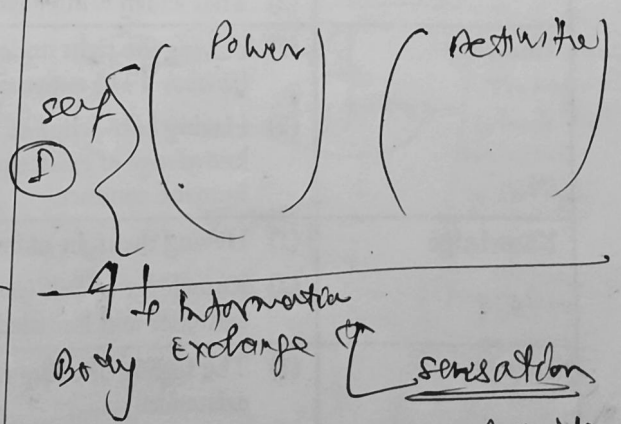 Power
Activitie
self
I
Information
Exchange
Body
sensation